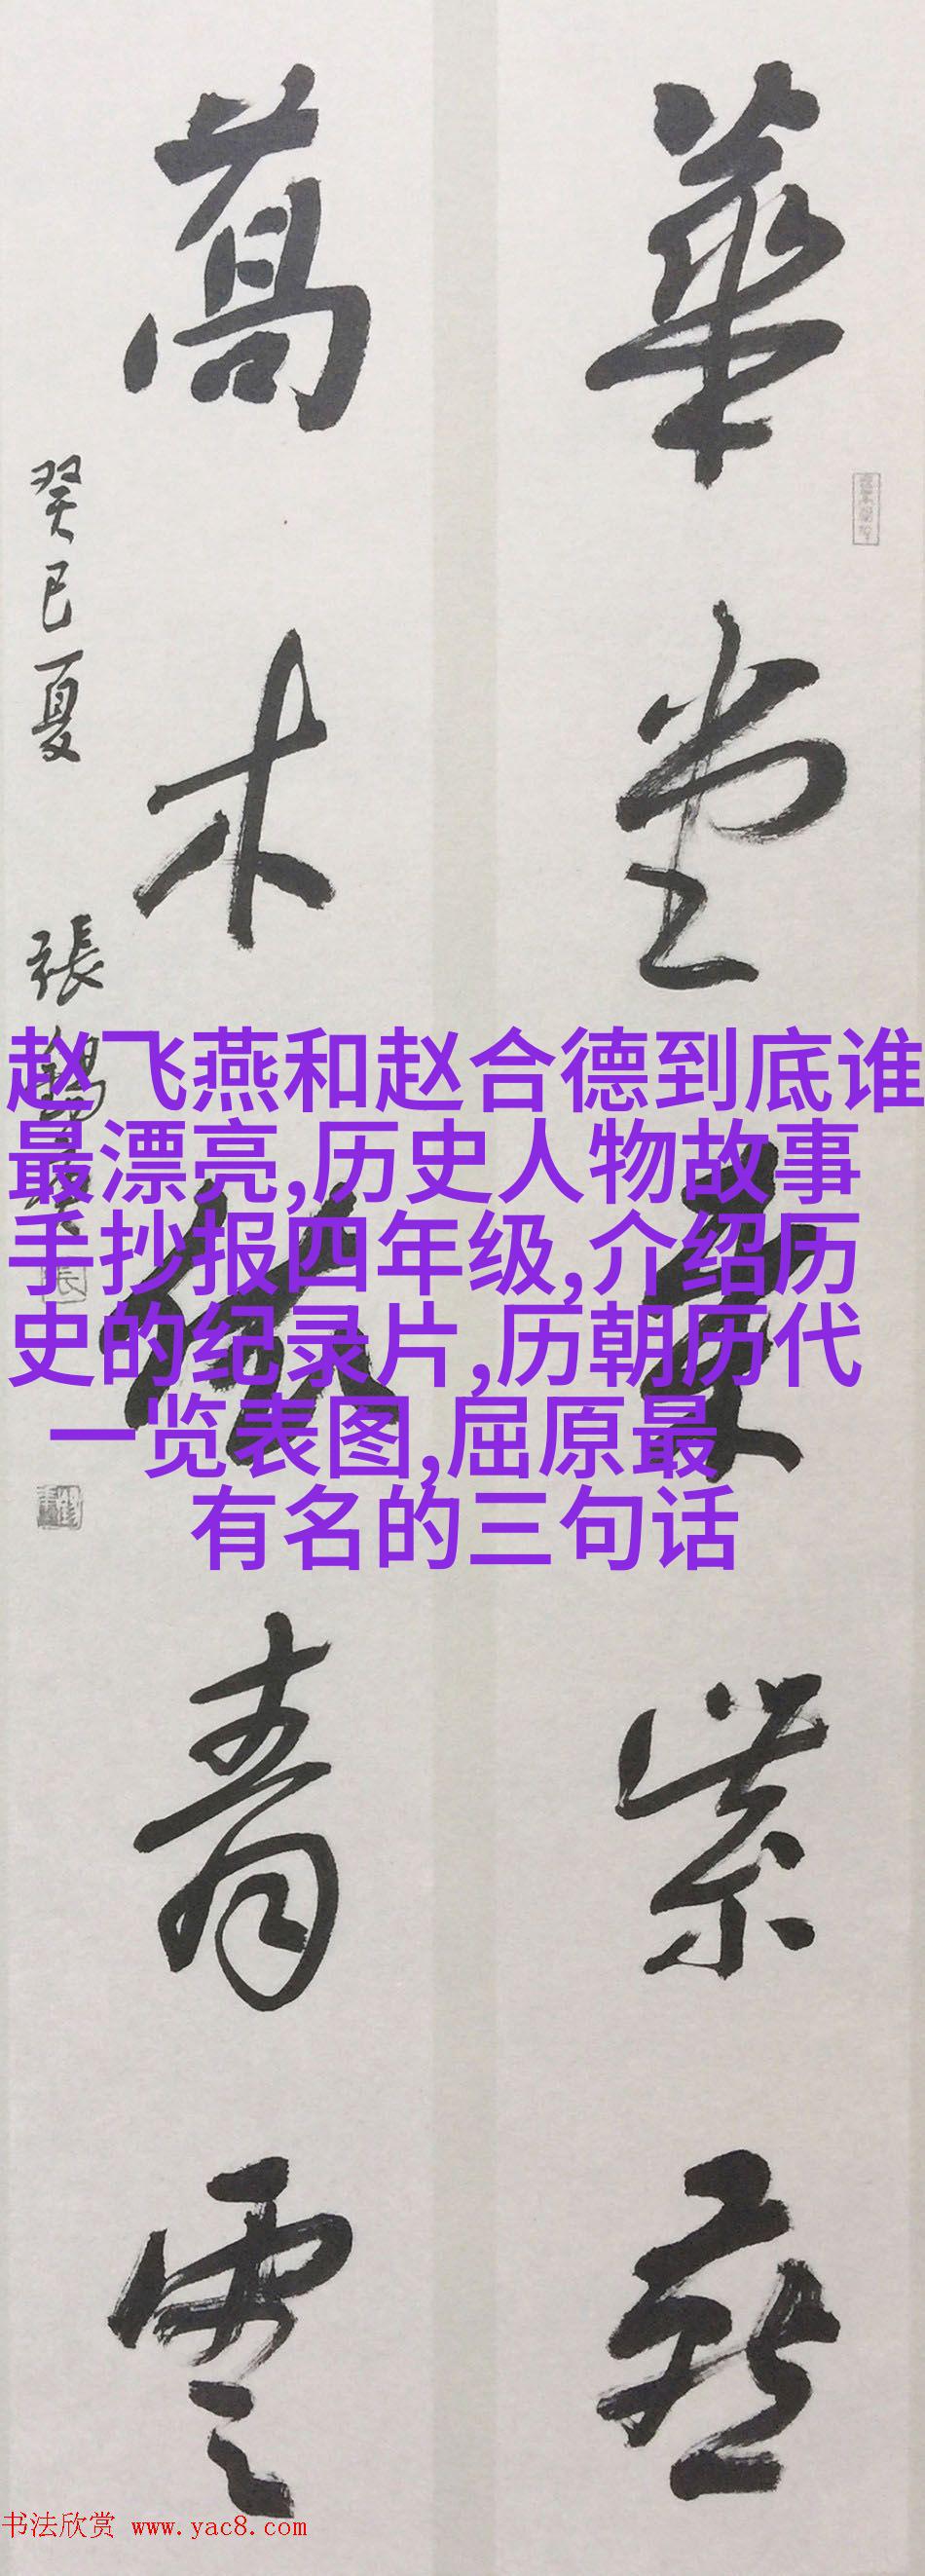 華堂
紫燕
萬木
青雲
癸巳夏 張
赵飞燕和赵合德到底谁
最漂亮,历史人物故事
手抄报四年级,介绍历
史的纪录片,历朝历代
一览表图,屈原最
有名的三句话
书法欣赏 www.yac8.com